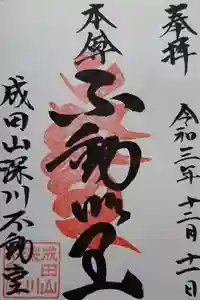 奉拝
令和三年十二月十一日
本尊
不動明王
成田山深川不動堂
成田山